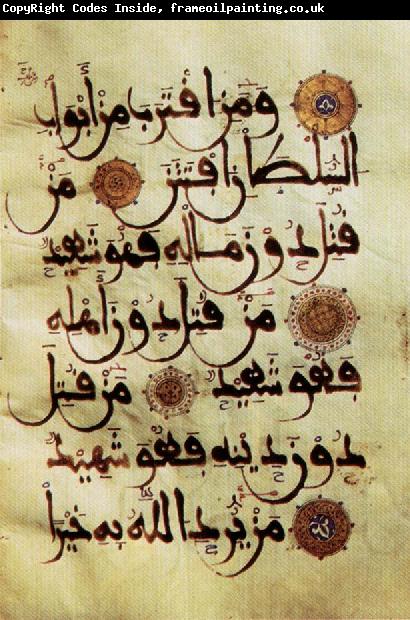 CopyRight Codes Inside, frameoilpainting.co.uk
ومن اقترب من أبواب
السلطان افتتن من
قتل دون ماله فهو شهيد
من قتل دون أهله
فهو شهيد من قتل
دون دينه فهو شهيد
من يرد الله به خيرا